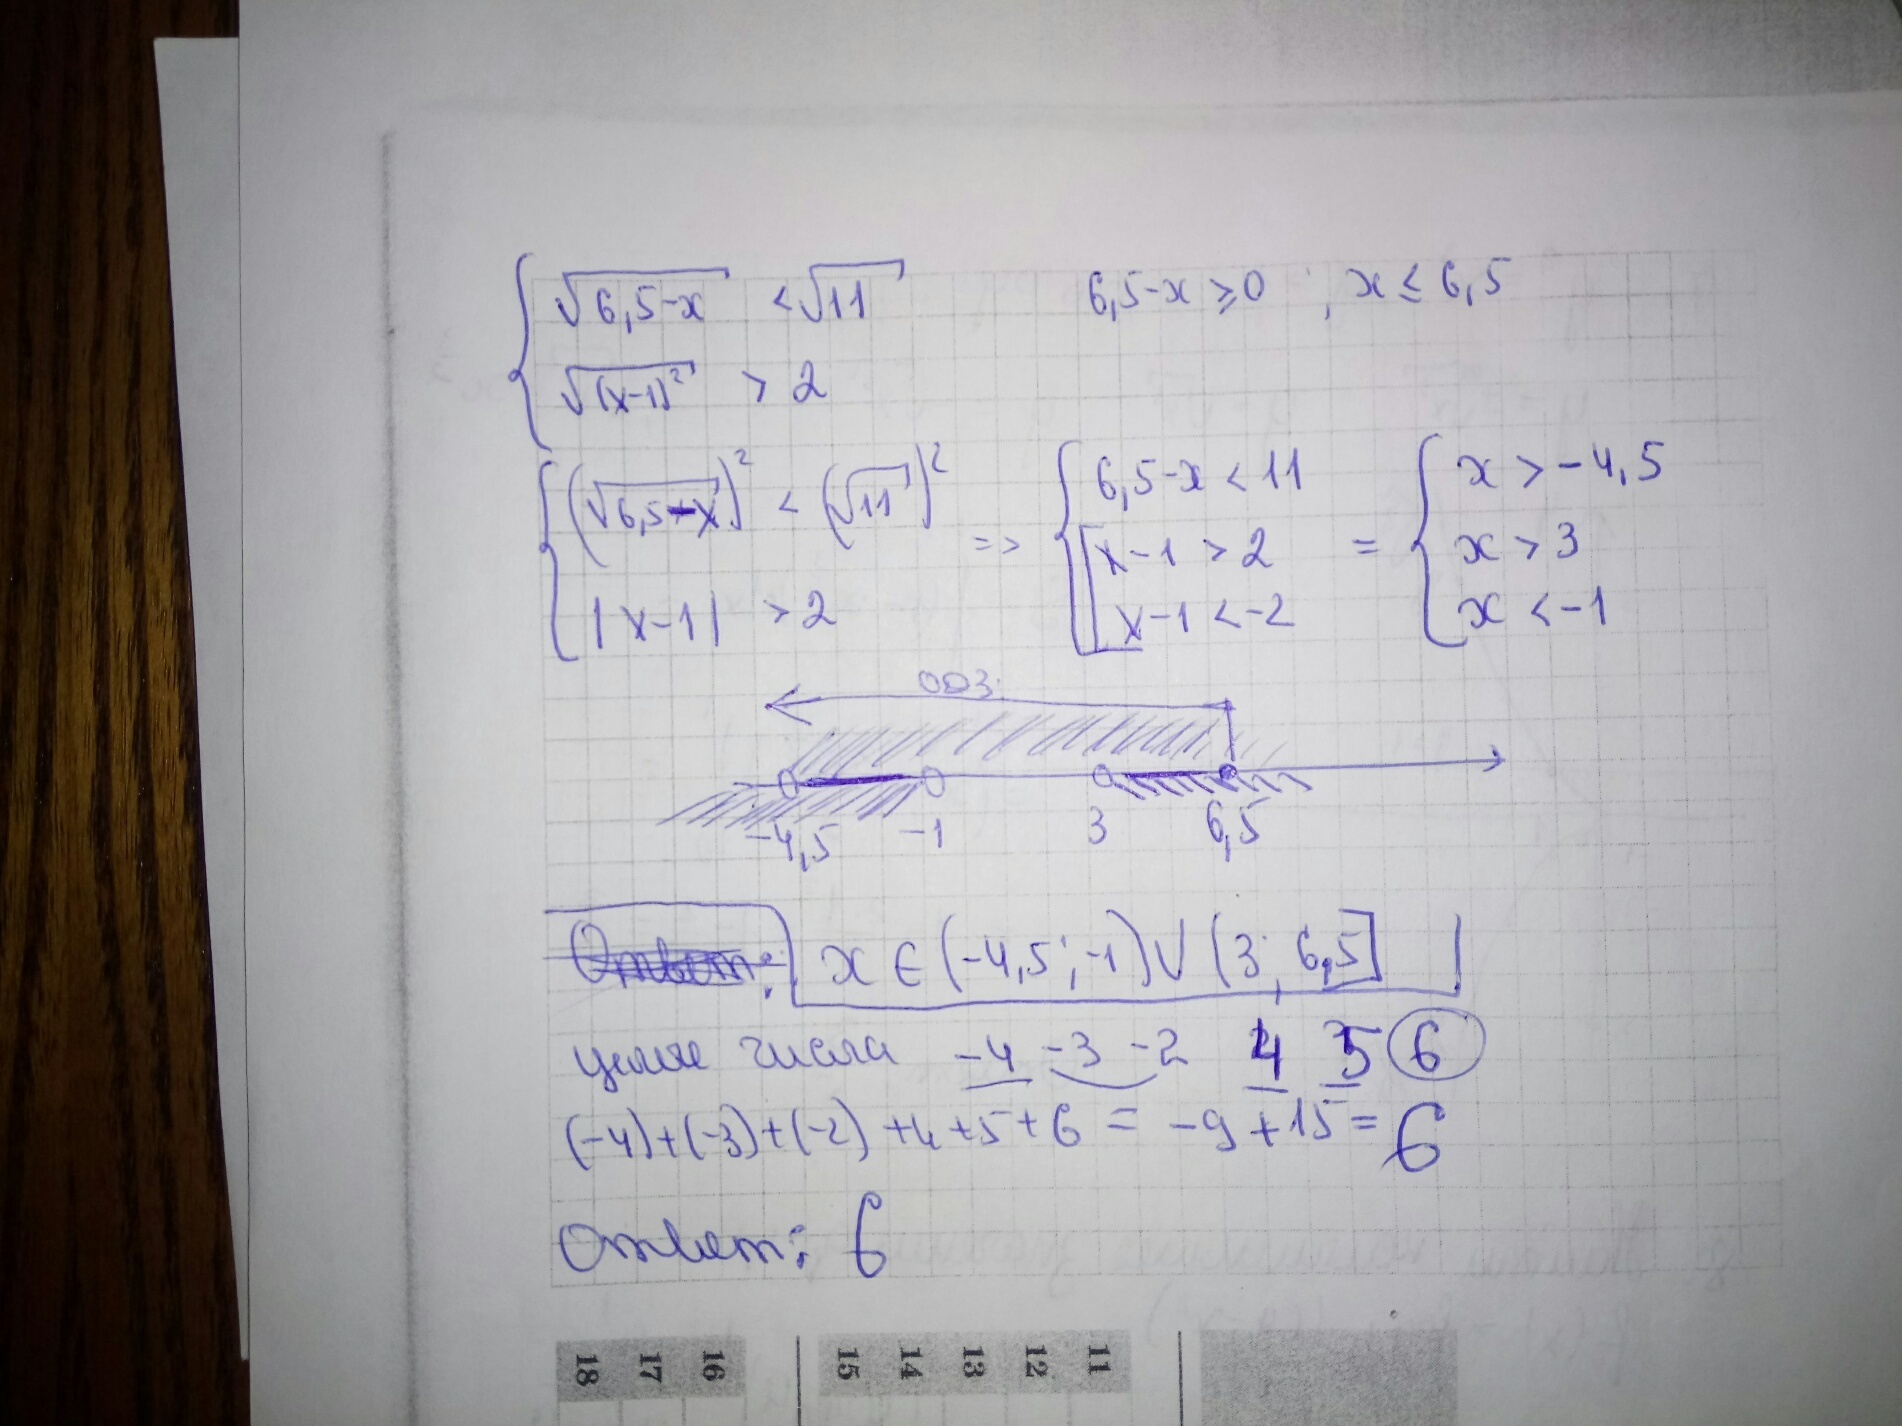 √6,5-x < √11 6,5-x ≥ 0 ; x ≤ 6,5
√(x-1)² > 2
(√6,5-x)² < (√11)² => 6,5-x < 11 = x > -4,5
x-1 > 2 x > 3
|x-1| > 2 x-1 < -2 x < -1
ОДЗ
-4,5 -1 3 6,5
Ответ: x ∈ (-4,5; -1) ∪ (3; 6,5]
целые числа -4 -3 -2 4 5 6
(-4)+(-3)+(-2)+4+5+6 = -9+15 = 6
Ответ: 6
18 17 16 15 14 13 12 11